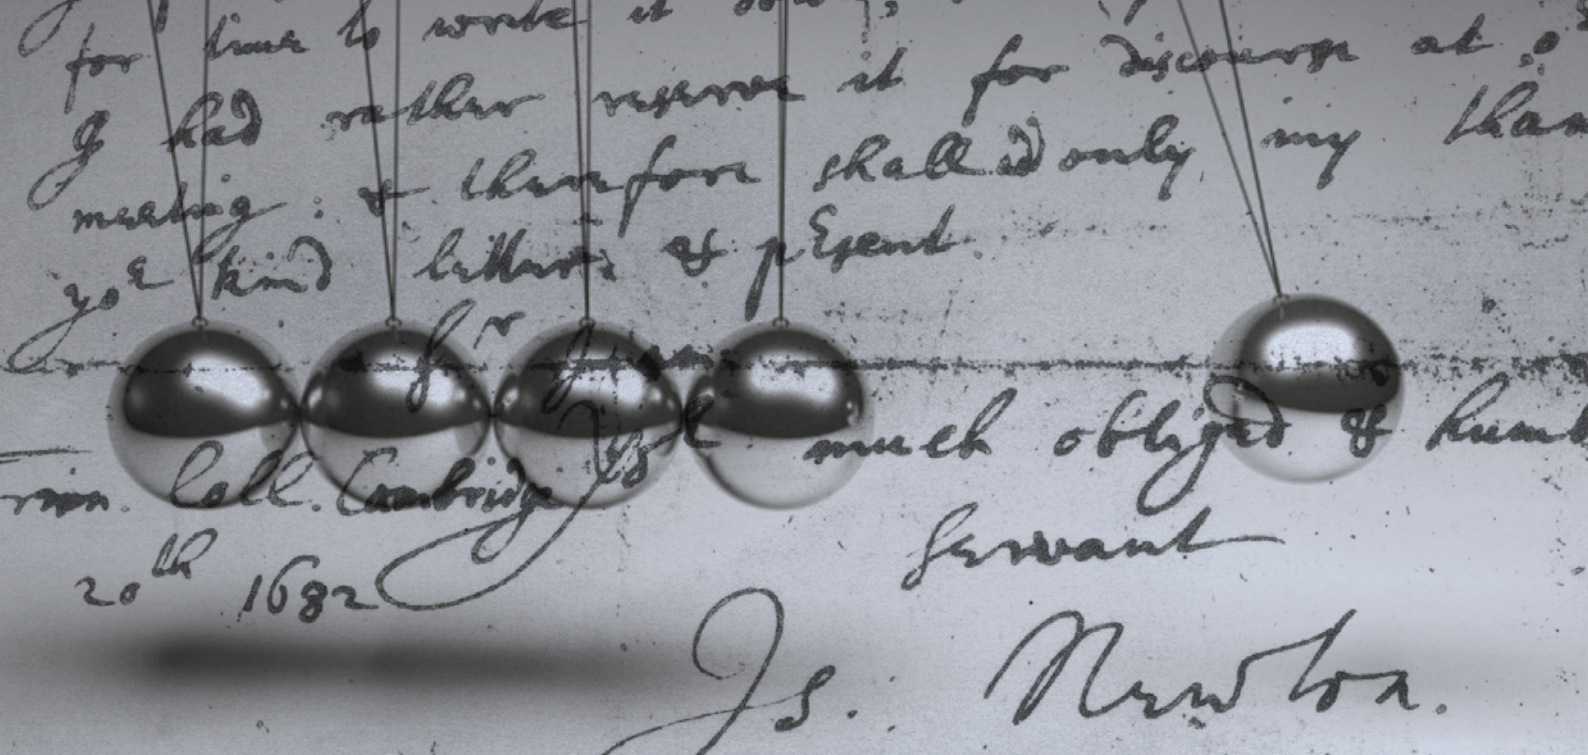 for time to write it down,
I had rather reserve it for discourse at o^r
meeting: & therefore shall add only my than
yo^r kind letter & present.
S^r I am
Yo^r much obliged & humb
Trin. Coll. Cambridge
Servant
20^th 1682
Is. Newton.